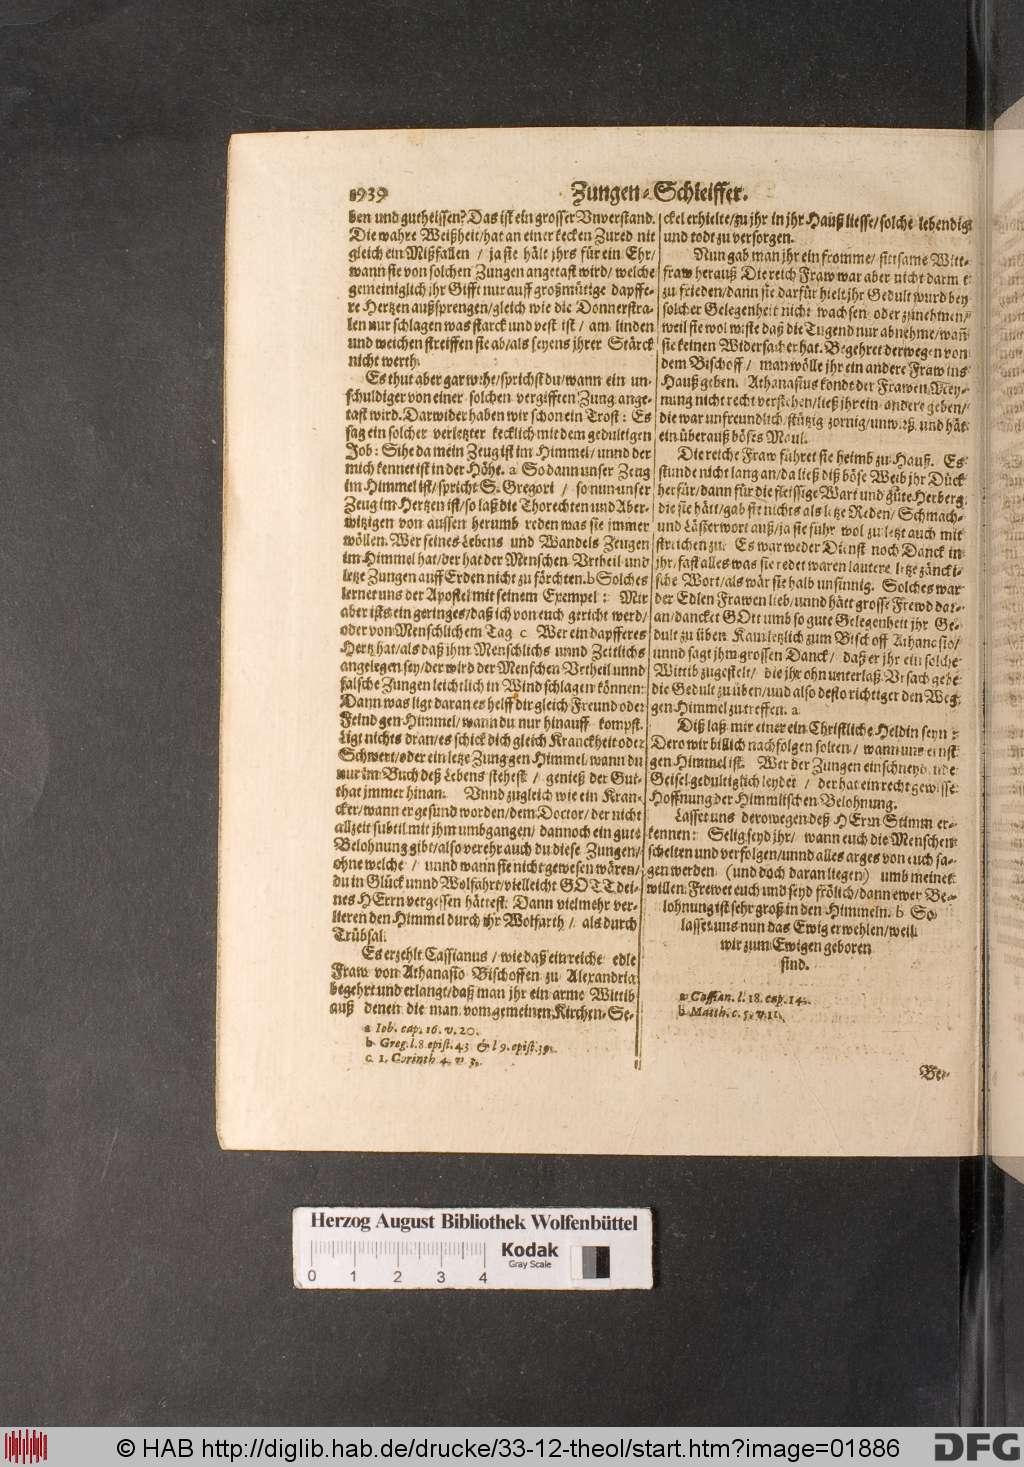 1939
Zungen-Schleiffer.
ben und gutheissen? Das ist ein grosser Vnverstand.
Die wahre Weißheit/hat an einer kecken Zured nit
gleich ein Mißfallen / ja sie hält jhrs für ein Ehr/
wann sie von solchen Zungen angetast wird/ welche
gemeiniglich jhr Gifft nur auff großmütige dapffe-
re Hertzen außsprengen/gleich wie die Donnerstra-
len nur schlagen was starck und vest ist / am linden
und weichen streiffen sie ab/als seyens jhrer Stärck
nicht werth.
Es thut aber gar wehe/sprichst du/wann ein un-
schuldiger von einer solchen vergifften Zung ange-
tast wird. Darwider haben wir schon ein Trost: Es
sag ein solcher verletzter kecklich mit dem gedultigen
Job: Sihe da mein Zeug ist im Himmel/ unnd der
mich kennet ist in der Höhe. a So dann unser Zeug
im Himmel ist/ spricht S. Gregori / so nun unser
Zeug im Hertzen ist/so laß die Thorechten und Aber-
witzigen von aussen herumb reden was sie jmmer
wöllen. Wer seines Lebens und Wandels Zeugen
im Himmel hat/der hat der Menschen Vrtheil und
letze Zungen auff Erden nicht zu förchten. b Solches
lernet uns der Apostel mit seinem Exempel: Mir
aber ists ein geringes/daß ich von euch gericht werd/
oder von Menschlichem Tag c Wer ein dapfferes
Hertz hat/als daß ihm Menschlichs unnd Zeitlichs
angelegen sey/der wird der Menschen Vrtheil unnd
falsche Zungen leichtlich in Wind schlagen können:
Dann was ligt daran es helff dir gleich Freund oder
Feind gen Himmel/wann du nur hinauff kompst.
Ligt nichts dran/es schick dich gleich Kranckheit oder
Schwert/oder ein letze Zung gen Himmel/wann du
nur im Buch deß Lebens stehest / genieß der Gut-
that jmmer hinan. Vnnd zugleich wie ein Kran-
cker/wann er gesund worden/dem Doctor/ der nicht
allzeit subtil mit jhm umbgangen/ dannoch ein gute
Belohnung gibt/also verehr auch du diese Zungen/
ohne welche / unnd wann sie nicht gewesen wären/
du in Glück unnd Wolfahrt/vielleicht GOTT dei-
nes HErrn vergessen hättest. Dann viel mehr ver-
lieren den Himmel durch jhr Wolfarth / als durch
Trübsal.
Es erzehlt Cassianus / wie daß ein reiche edle
Fraw von Athanasio Bischoffen zu Alexandria
begehrt und erlangt/daß man jhr ein arme Wittib
auß denen die man vom gemeinen Kirchen-Se-
a Iob. cap. 16. v. 20.
b Greg. l. 8 epist. 43 & l 9. epist. 39.
c. 1. Corinth 4. v 3.
ckel erhielte/zu jhr in jhr Hauß liesse/solche lebendig
und todt zu versorgen.
Nun gab man jhr ein fromme/ sittsame Witt-
fraw herauß Die reich Fraw war aber nicht darmit
zu frieden/dann sie darfür hielt jhr Gedult wurd bey
solcher Gelegenheit nicht wachsen oder zunehmen/
weil sie wol wiste daß die Tugend nur abnehme/wañ
sie keinen Widersacher hat. Begehret derwegen von
dem Bischoff / man wölle jhr ein andere Fraw ins
Hauß geben. Athanasius kondt der Frawen Mey-
nung nicht recht verstehen/ließ jhr ein andere geben/
die war unfreundlich/stützig zornig/unwirß und hät
ein überauß böses Maul.
Die reiche Fraw führet sie heimb zu Hauß. Es
stunde nicht lang an/da ließ diß böse Weib jhr Dück
herfür/dann für die fleissige Wart und gute Herberg
die sie hätt/gab sie nichts als letze Reden/ Schmach-
und Lästerwort auß/ja sie fuhr wol zu letzt auch mit
streichen zu. Es war weder Dienst noch Danck in
jhr/fast alles was sie redet waren lautere letze zäncki-
sche Wort/als wär sie halb unsinnig. Solches war
der Edlen Frawen lieb/unnd hätt grosse Frewd dar-
an/dancket GOtt umb so gute Gelegenheit jhr Ge-
dult zu üben Kam letzlich zum Bischoff Athanasio/
unnd sagt jhm grossen Danck/ daß er jhr ein solche
Wittib zugestelt/ die jhr ohn unterlaß Vrsach gebe
die Gedult zu üben/und also desto richtiger den Weg
gen Himmel zu treffen. a
Diß laß mir einer ein Christliche Heldin seyn:
Dero wir billich nachfolgen solten/ wann uns ernst
gen Himmel ist. Wer der Zungen einschneydende
Geisel gedultiglich leydet / der hat ein recht gewisse
Hoffnung der Himmlischen Belohnung.
Lasset uns derowegen deß HErrn Stimm er-
kennen: Selig seyd jhr/ wann euch die Menschen
schelten und verfolgen/unnd alles arges von euch sa-
gen werden (und doch daran liegen) umb meinet
willen. Frewet euch und seyd frölich/dann ewer Be-
lohnung ist sehr groß in den Himmeln. b So
lasset uns nun das Ewig erwehlen/weil
wir zum Ewigen geboren
sind.
a Cassian. l. 18. cap. 14.
b Matth. c. 5. v. 11.
Be-
Herzog August Bibliothek Wolfenbüttel
Kodak
Gray Scale
0 1 2 3 4
© HAB http://diglib.hab.de/drucke/33-12-theol/start.htm?image=01886
DFG